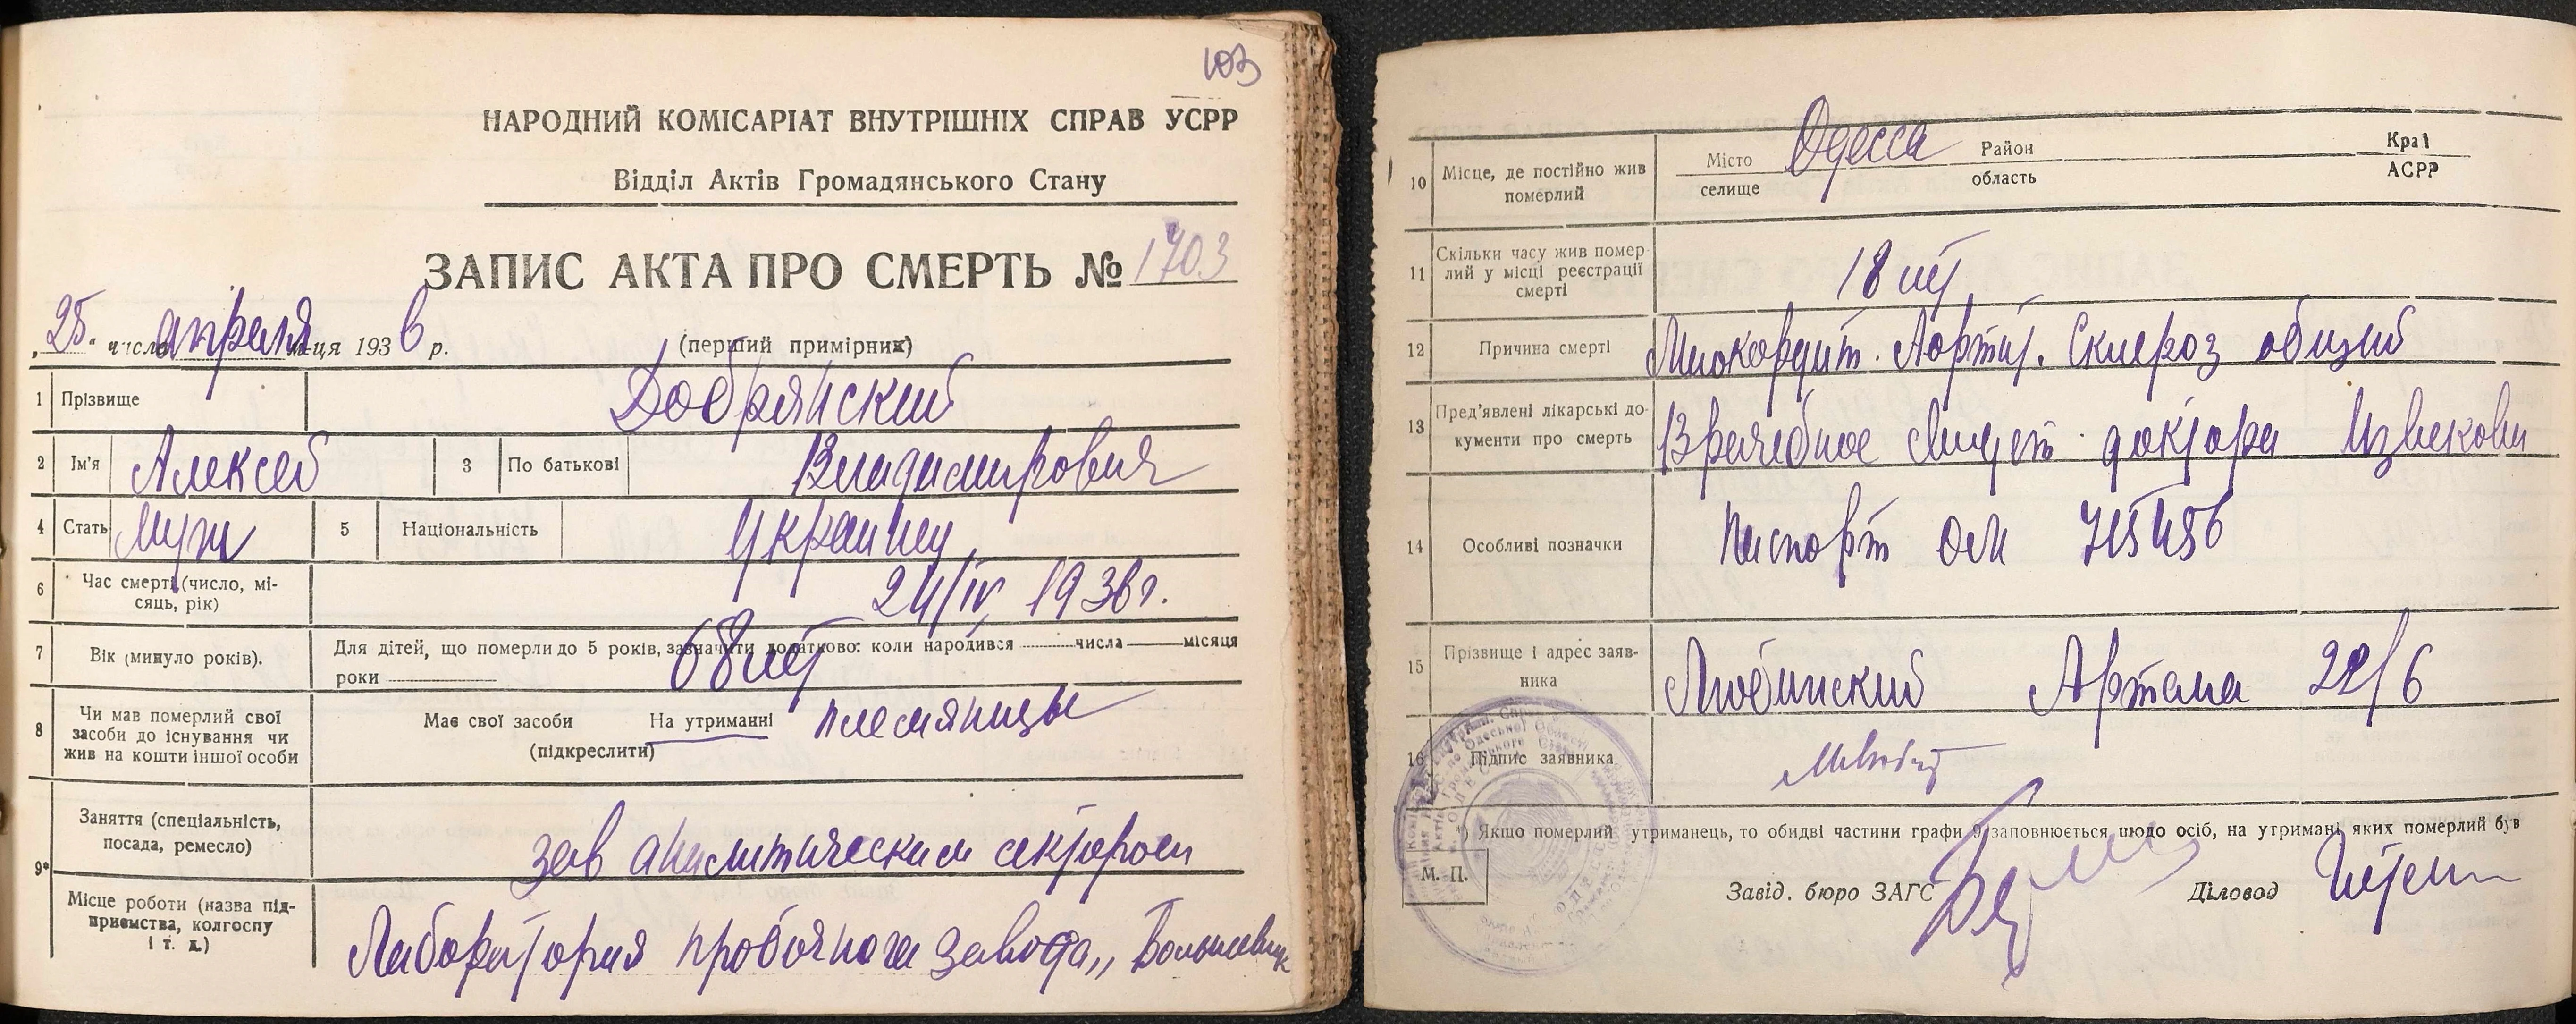 103
НАРОДНИЙ КОМІСАРІАТ ВНУТРІШНІХ СПРАВ УСРР
Відділ Актів Громадянського Стану
ЗАПИС АКТА ПРО СМЕРТЬ № 1703
„25" число апреля м-ця 1936 р. (перший примірник)
1 Прізвище Добрянский
2 Ім'я Алексей 3 По батькові Владимирович
4 Стать муж 5 Національність Украинец
6 Час смерті (число, мі-
сяць, рік) 24/IV 1936 г.
7 Вік (минуло років). Для дітей, що померли до 5 років, зазначити додатково: коли народився числа місяця
роки 68 лет
8 Чи мав померлий свої
засоби до існування чи
жив на кошти іншої особи Має свої засоби На утриманні племяницы
(підкреслити)
9* Заняття (спеціальність,
посада, ремесло) зав аналитическим сектором
Місце роботи (назва під-
приємства, колгоспу
і т. д.) Лаборатория пробочного завода „Большевик
10 Місце, де постійно жив
померлий Місто Одесса Район Край
селище область АСРР
11 Скільки часу жив помер-
лий у місці реєстрації
смерті 18 лет
12 Причина смерті Миокардит. Аортит. Склероз общий
13 Пред'явлені лікарські до-
кументи про смерть Врачебное свидет. доктора Извекова
14 Особливі позначки Паспорт ОМ 715456
15 Прізвище і адрес заяв-
ника Любинский Артема 22/6
16 Підпис заявника
*) Якщо померлий утриманець, то обидві частини графи 9 заповнюється щодо осіб, на утримані яких померлий був
М. П.
Завід. бюро ЗАГС Діловод